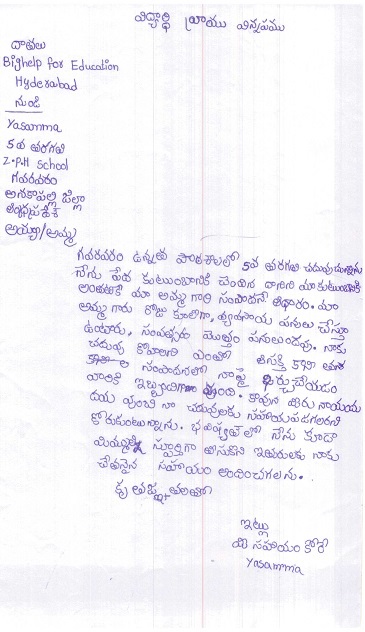 విద్యార్థి వ్రాయు విన్నపము
దాతలు
Bighelp for Education
Hyderabad
నుండి
Yasamma
5వ తరగతి
Z.P.H School
గవరవరం
అనకాపల్లి జిల్లా
ఆంధ్రప్రదేశ్
అయ్యా/అమ్మ
గవరవరం ఉన్నత పాఠశాలలో 5వ తరగతి చదువుచున్నాను
నేను పేద కుటుంబానికి చెందిన దానిని మా కుటుంబానికి
అంతటికి మా అమ్మ గారి సంపాదనే ఆధారం. మా
అమ్మ గారు రోజు కూలీగా, వ్యవసాయ పనులు చేస్తూ
ఉంటారు, సంవత్సరం మొత్తం పనులుండవు. నాకు
చదువు కోవాలని ఎంతో ఆసక్తి కలదు
సంపాదనలో నాపై ఖర్చుచేయడం
వారికి ఇబ్బందిగా వుంది. కావున మీరు నాయందు
దయ వుంచి నా చదువులకు సహాయపడగలరని
కోరుకుంటున్నాను. భవిష్యత్ లో నేను కూడా
మిమ్మల్ని స్ఫూర్తిగా తీసుకుని ఇతరులకు నాకు
చేతనైన సహాయం అందించగలను.
కృతజ్ఞతలతో
ఇట్లు
మీ సహాయం కోరే
Yasamma